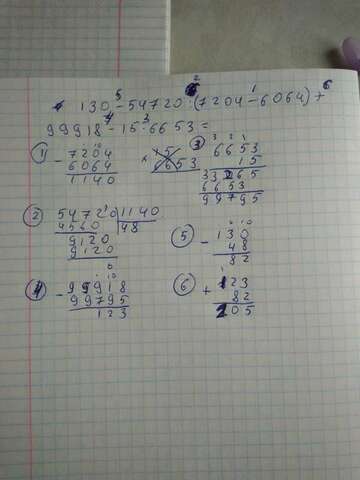 130 - 54720 : (7204 - 6064) +
99918 - 15 · 6653 =
1) - 7204
6064
1140
3) 6653
15
33265
6653
99795
2) 54720 | 1140
4560 | 48
9120
9120
0
4) - 99918
99795
123
5) - 130
48
82
6) + 123
82
205